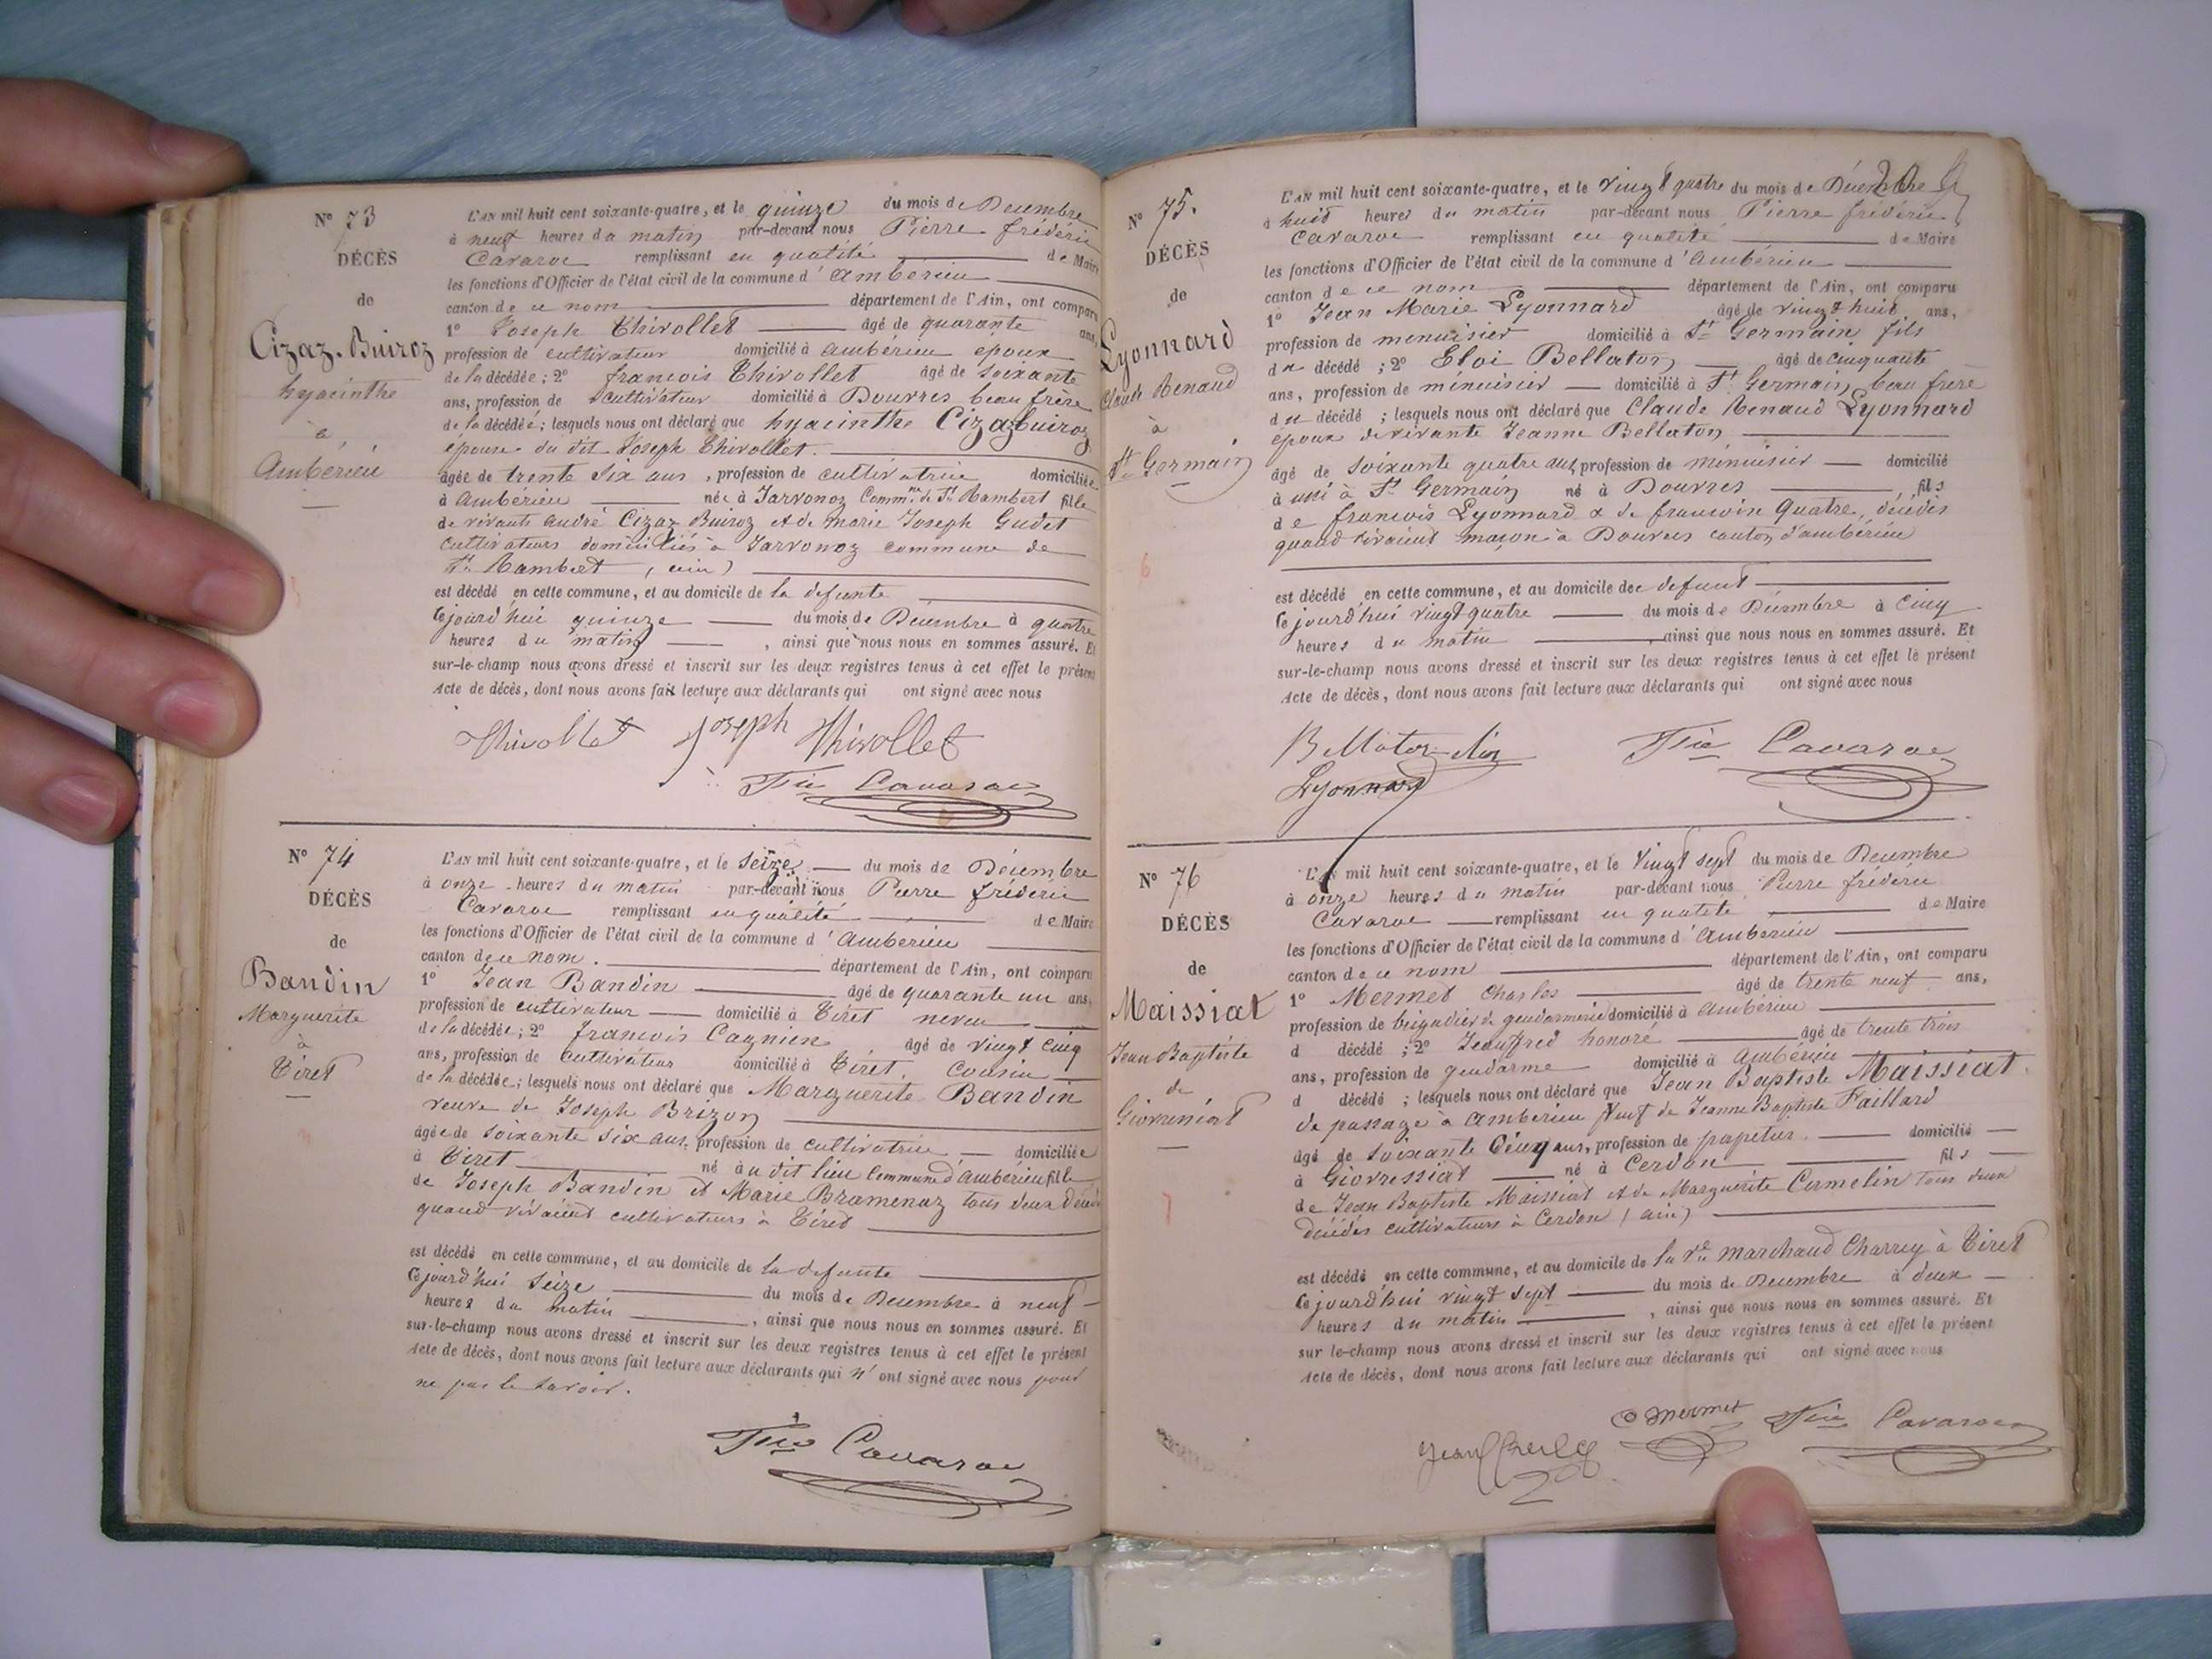 N° 73
DÉCÈS
de
Cizaz-Buiroz
hyacinthe
à
Ambérieu
L'AN mil huit cent soixante-quatre, et le quinze du mois de Decembre
à neuf heures du matin par-devant nous Pierre frédéric
Cavaroc remplissant en qualité de Maire
les fonctions d'Officier de l'état civil de la commune d'Ambérieu
canton de ce nom département de l'Ain, ont comparu
1° Joseph Thivollet âgé de quarante ans,
profession de cultivateur domicilié à ambérieu epoux
de la décédée ; 2° francois Thivollet âgé de soixante
ans, profession de cultivateur domicilié à Douvres beau frère
de la décédée ; lesquels nous ont déclaré que hyacinthe Cizazbuiroz
épouse du dit Joseph Thivollet.
âgée de trente six ans, profession de cultivatrice domiciliée
à ambérieu née à Javornoz Commne de St Rambert fille
de vivants andré Cizaz Buiroz et de marie Joseph Gudet
cultivateurs domiciliés à Javornoz commune de
St Rambert (ain)
est décédé en cette commune, et au domicile de la defunte
Cejourd'hui quinze du mois de Décembre à quatre
heures du matin , ainsi que nous nous en sommes assuré. Et
sur-le-champ nous avons dressé et inscrit sur les deux registres tenus à cet effet le présent
Acte de décès, dont nous avons fait lecture aux déclarants qui ont signé avec nous
Thivollet Joseph Thivollet
Fric Cavaroc
N° 74
DÉCÈS
de
Bandin
Marguerite
à
Tiret
L'AN mil huit cent soixante-quatre, et le seize du mois de Décembre
à onze heures du matin par-devant nous Pierre fréderic
Cavaroc remplissant en qualité de Maire
les fonctions d'Officier de l'état civil de la commune d'Amberieu
canton de ce nom. département de l'Ain, ont comparu
1° Jean Bandin âgé de quarante un ans,
profession de cultivateur domicilié à Tiret neveu
de la décédée ; 2° francois Cagnien âgé de vingt cinq
ans, profession de cultivateur domicilié à Tiret. Cousin
de la décédée ; lesquels nous ont déclaré que Marguerite Bandin
veuve de Joseph Brizon
âgée de soixante six ans, profession de cultivatrice domiciliée
à Tiret né au dit lieu commune d'ambérieu fille
de Joseph Bandin et Marie Bramenaz tous deux décédés
quand vivaient cultivateurs à Tiret
est décédé en cette commune, et au domicile de la defunte
Cejourd'hui seize du mois de Decembre à neuf
heures du matin , ainsi que nous nous en sommes assuré. Et
sur-le-champ nous avons dressé et inscrit sur les deux registres tenus à cet effet le présent
Acte de décès, dont nous avons fait lecture aux déclarants qui n'ont signé avec nous pour
ne pas le savoir.
Fric Cavaroc
N° 75.
DÉCÈS
de
Lyonnard
Claude Renaud
à
St Germain
6
L'AN mil huit cent soixante-quatre, et le vingt quatre du mois de Décembre
à huit heures du matin par-devant nous Pierre fréderic
Cavaroc remplissant en qualité de Maire
les fonctions d'Officier de l'état civil de la commune d'ambérieu
canton de ce nom département de l'Ain, ont comparu
1° Jean Marie Lyonnard âgé de vingt huit ans,
profession de menuisier domicilié à St Germain fils
du décédé ; 2° Eloi Bellaton âgé de cinquante
ans, profession de menuisier domicilié à St Germain, beau frère
du décédé ; lesquels nous ont déclaré que Claude Renaud Lyonnard
époux de vivante Jeanne Bellaton
âgé de soixante quatre ans profession de menuisier domicilié
à St Germain né à Douvres fils
de francois Lyonnard & de francoise Quatre, décédés
quand vivaient maçon à Douvres canton d'ambérieu
est décédé en cette commune, et au domicile de defunt
Cejourd'hui vingt quatre du mois de Décembre à cinq
heures du matin , ainsi que nous nous en sommes assuré. Et
sur-le-champ nous avons dressé et inscrit sur les deux registres tenus à cet effet le présent
Acte de décès, dont nous avons fait lecture aux déclarants qui ont signé avec nous
Bellaton Fric Cavaroc
Lyonnard
N° 76
DÉCÈS
de
Maissiat
Jean Baptiste
de
7
L'AN mil huit cent soixante-quatre, et le vingt sept du mois de Decembre
à onze heures du matin par-devant nous Pierre fréderic
Cavaroc remplissant en qualité de Maire
les fonctions d'Officier de l'état civil de la commune d'ambérieu
canton de ce nom département de l'Ain, ont comparu
1° Mermet Charles âgé de trente neuf ans,
profession de brigadier de gendarmerie domicilié à ambérieu
d décédé ; 2° Jeauffred honoré âgé de trente trois
ans, profession de gendarme domicilié à ambérieu
d décédé ; lesquels nous ont déclaré que Jean Baptiste Maissiat.
de passage à amberieu veuf de Jeanne Baptiste Paillard
âgé de soixante cinq ans, profession de papetier. domicilié
à Giovressiat né à Cerdon fils
de Jean Baptiste Maissiat et de Marguerite Cermelin tous deux
décédés cultivateurs à Cerdon (ain)
est décédé en cette commune, et au domicile de la Ve marchand Charrey à Tiret
Cejourd'hui vingt sept du mois de Decembre à deux
heures du matin , ainsi que nous nous en sommes assuré. Et
sur le-champ nous avons dressé et inscrit sur les deux registres tenus à cet effet le présent
Acte de décès, dont nous avons fait lecture aux déclarants qui ont signé avec nous
C Mermet Fric Cavaroc